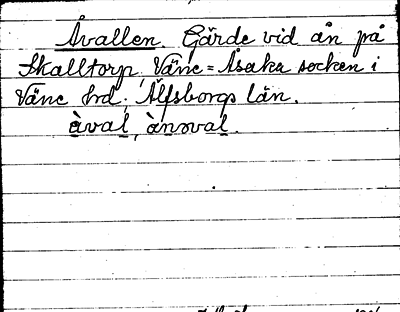 Åvallen. Gärde vid ån på
Skalltorp, Väne-Åsaka socken i
Väne hrd. Älfsborgs län.
àval, ànoval.